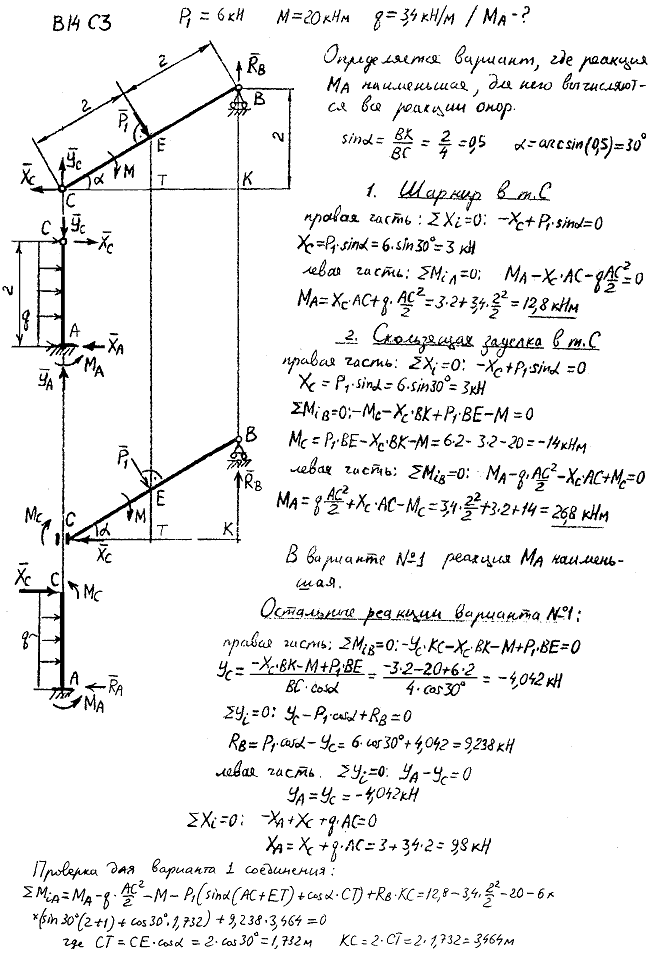 В14 С3
P₁ = 6кН M=20кНм q=3,4кН/м / Mᴀ-?
Определяется вариант, где реакция
Mᴀ наименьшая, для него вычисляют-
ся все реакции опор.
sinα = BK/BC = 2/4 = 0,5 α=arcsin(0,5)=30°
1. Шарнир в т.С
правая часть: ΣXi=0: -Xc+P₁·sinα=0
Xc=P₁·sinα=6·sin30°=3 кН
левая часть: ΣMiл=0: Mᴀ-Xc·AC-qAC²/2=0
Mᴀ=Xc·AC+q·AC²/2=3·2+3,4·2²/2=12,8 кНм
2. Скользящая заделка в т.С
правая часть: ΣXi=0: -Xc+P₁·sinα=0
Xc=P₁·sinα=6·sin30°=3кН
ΣMiв=0:-Mc-Xc·BK+P₁·BE-M=0
Mc=P₁·BE-Xc·BK-M=6·2-3·2-20=-14кНм
левая часть: ΣMiв=0: Mᴀ-q·AC²/2-Xc·AC+Mc=0
Mᴀ=qAC²/2+Xc·AC-Mc=3,4·2²/2+3·2+14=26,8 кНм
В варианте №1 реакция Mᴀ наимень-
шая.
Остальные реакции варианта №1:
правая часть: ΣMiв=0:-Yc·KC-Xc·BK-M+P₁·BE=0
Yc=-Xc·BK-M+P₁·BE/BC·cosα=-3·2-20+6·2/4·cos30°=-4,042кН
ΣYi=0: Yc-P₁·cosα+Rв=0
Rв=P₁·cosα-Yc=6·cos30°+4,042=9,238кН
левая часть. ΣYi=0: Yᴀ-Yc=0
Yᴀ=Yc=-4,042кН
ΣXi=0: -Xᴀ+Xc+q·AC=0
Xᴀ=Xc+q·AC=3+3,4·2=9,8 кН
Проверка для варианта 1 соединения:
ΣMiᴀ=Mᴀ-q·AC²/2-M-P₁(sinα(AC+ET)+cosα·CT)+Rв·KC=12,8-3,4·2²/2-20-6×
×(sin30°(2+1)+cos30°·1,732)+9,238·3,464=0
где CT=CE·cosα=2·cos30°=1,732м KC=2·CT=2·1,732=3,464м
2
2
R̄в
B
P̄₁
E
2
Ȳc
X̄c
C
α
M
T
K
Ȳc
C
X̄c
2
q
A
X̄ᴀ
Mᴀ
Ȳᴀ
B
P̄₁
R̄в
E
M
Mc
C
α
X̄c
T
K
X̄c
C
Mc
q
A
R̄ᴀ
Mᴀ